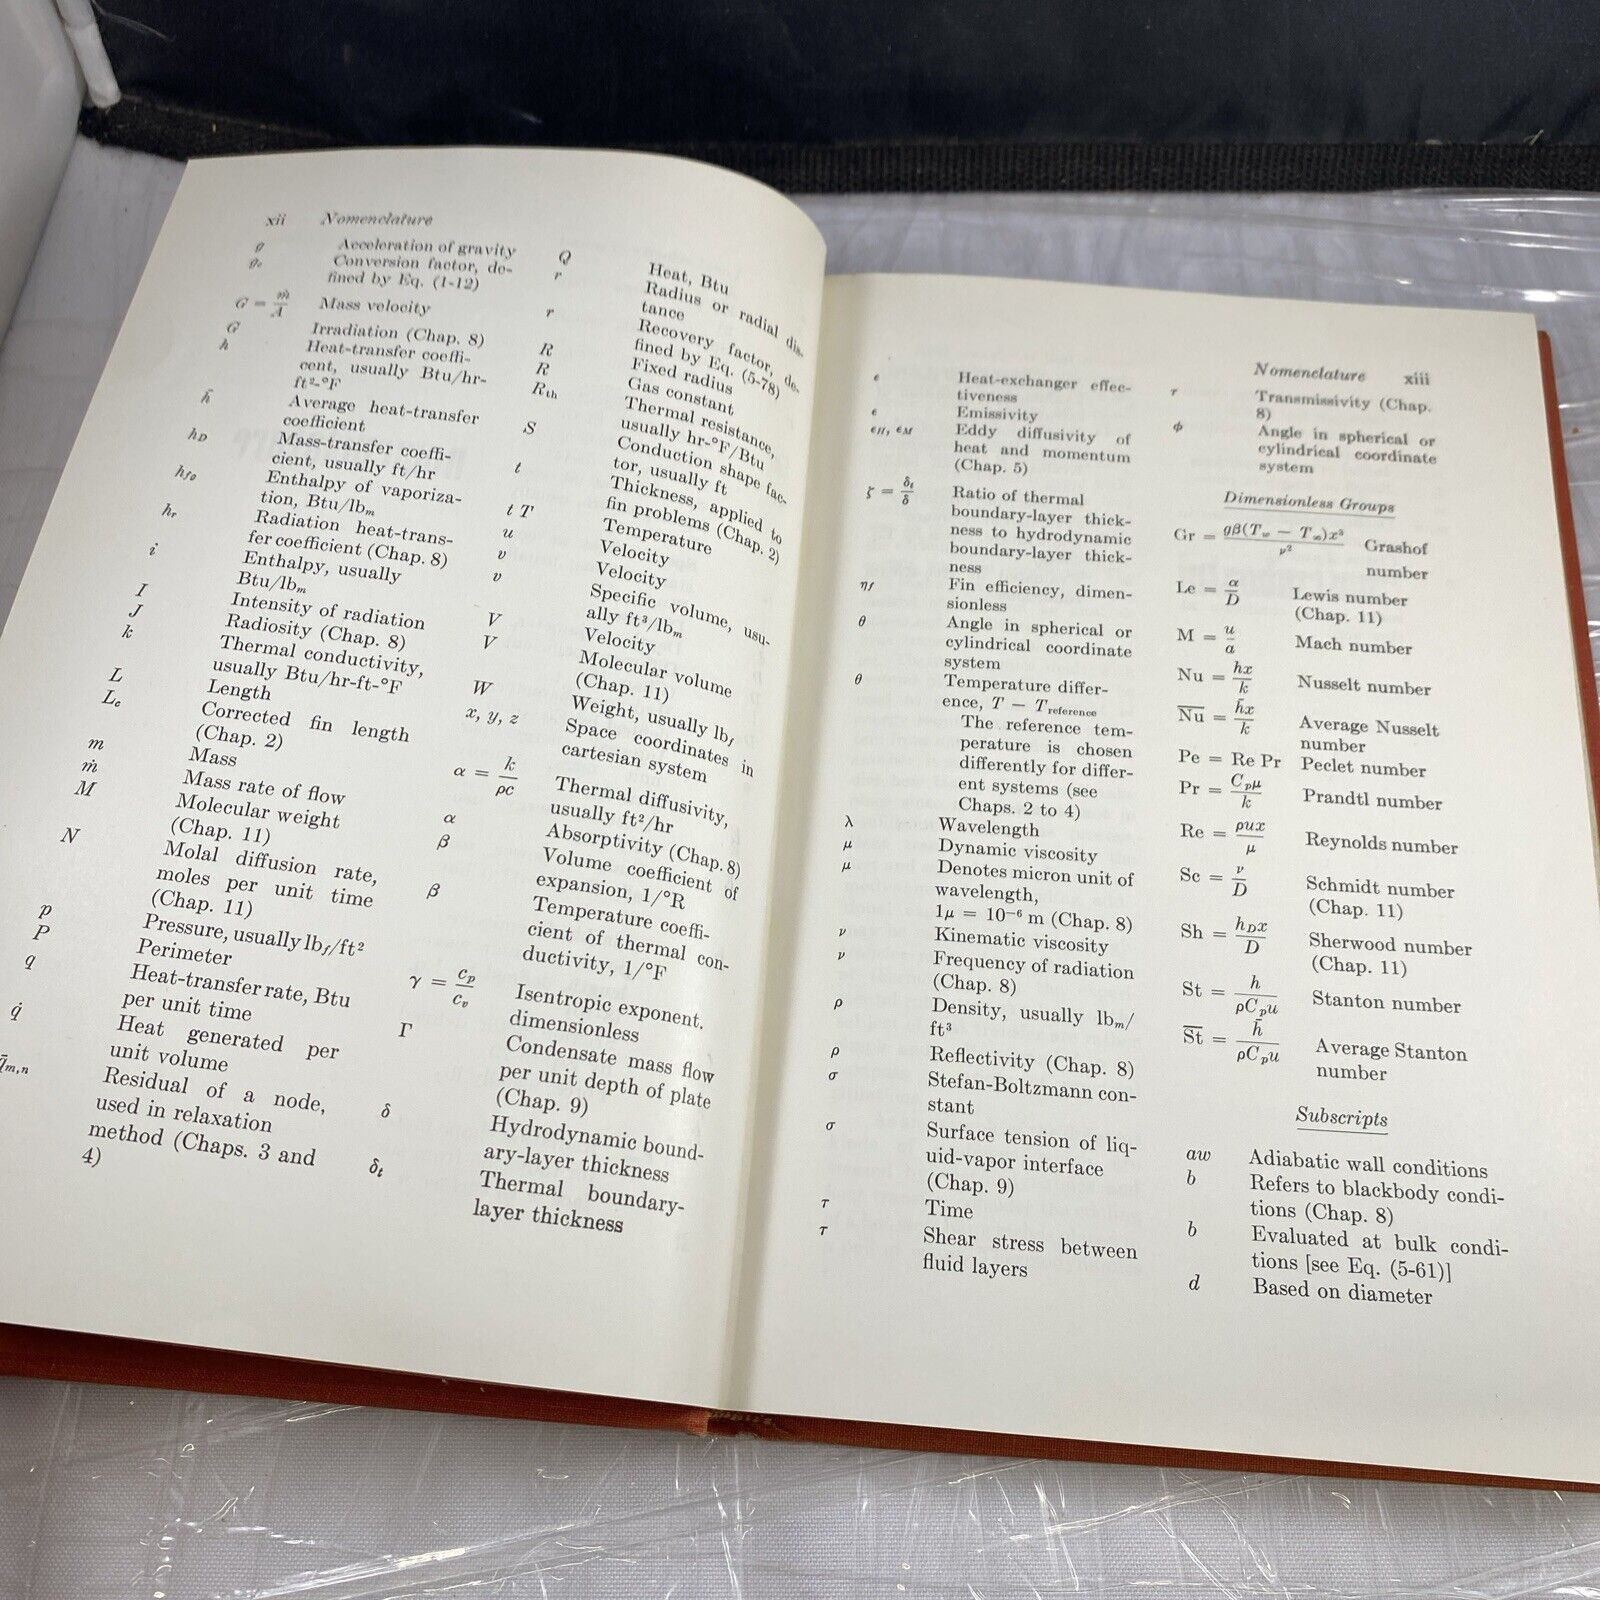 xii Nomenclature
g Acceleration of gravity
g_c Conversion factor, de-
fined by Eq. (1-12)
G = ṁ/A Mass velocity
G Irradiation (Chap. 8)
h Heat-transfer coeffi-
cient, usually Btu/hr-
ft²-°F
h̄ Average heat-transfer
coefficient
h_D Mass-transfer coeffi-
cient, usually ft/hr
h_fg Enthalpy of vaporiza-
tion, Btu/lb_m
h_r Radiation heat-trans-
fer coefficient (Chap. 8)
i Enthalpy, usually
Btu/lb_m
I Intensity of radiation
J Radiosity (Chap. 8)
k Thermal conductivity,
usually Btu/hr-ft-°F
L Length
L_c Corrected fin length
(Chap. 2)
m Mass
ṁ Mass rate of flow
M Molecular weight
(Chap. 11)
N Molal diffusion rate,
moles per unit time
(Chap. 11)
p Pressure, usually lb_f/ft²
P Perimeter
q Heat-transfer rate, Btu
per unit time
q̇ Heat generated per
unit volume
q̄_m,n Residual of a node,
used in relaxation
method (Chaps. 3 and
4)
Q Heat, Btu
r Radius or radial dis-
tance
r Recovery factor, de-
fined by Eq. (5-78)
R Fixed radius
R Gas constant
R_th Thermal resistance,
usually hr-°F/Btu
S Conduction shape fac-
tor, usually ft
t Thickness, applied to
fin problems (Chap. 2)
t T Temperature
u Velocity
v Velocity
v Specific volume, usu-
ally ft³/lb_m
V Velocity
V Molecular volume
(Chap. 11)
W Weight, usually lb_f
x, y, z Space coordinates in
cartesian system
α = k/ρc Thermal diffusivity,
usually ft²/hr
α Absorptivity (Chap. 8)
β Volume coefficient of
expansion, 1/°R
β Temperature coeffi-
cient of thermal con-
ductivity, 1/°F
γ = c_p/c_v Isentropic exponent.
dimensionless
Γ Condensate mass flow
per unit depth of plate
(Chap. 9)
δ Hydrodynamic bound-
ary-layer thickness
δ_t Thermal boundary-
layer thickness
Nomenclature xiii
ϵ Heat-exchanger effec-
tiveness
ϵ Emissivity
ϵ_H, ϵ_M Eddy diffusivity of
heat and momentum
(Chap. 5)
ζ = δ_t/δ Ratio of thermal
boundary-layer thick-
ness to hydrodynamic
boundary-layer thick-
ness
η_f Fin efficiency, dimen-
sionless
θ Angle in spherical or
cylindrical coordinate
system
θ Temperature differ-
ence, T − T_reference
The reference tem-
perature is chosen
differently for differ-
ent systems (see
Chaps. 2 to 4)
λ Wavelength
μ Dynamic viscosity
μ Denotes micron unit of
wavelength,
1μ = 10⁻⁶ m (Chap. 8)
ν Kinematic viscosity
ν Frequency of radiation
(Chap. 8)
ρ Density, usually lb_m/
ft³
ρ Reflectivity (Chap. 8)
σ Stefan-Boltzmann con-
stant
σ Surface tension of liq-
uid-vapor interface
(Chap. 9)
τ Time
τ Shear stress between
fluid layers
τ Transmissivity (Chap.
8)
φ Angle in spherical or
cylindrical coordinate
system
Dimensionless Groups
Gr = gβ(T_w − T_∞)x³/ν² Grashof
number
Le = α/D Lewis number
(Chap. 11)
M = u/a Mach number
Nu = hx/k Nusselt number
N̅u̅ = h̄x/k Average Nusselt
number
Pe = Re Pr Peclet number
Pr = C_pμ/k Prandtl number
Re = ρux/μ Reynolds number
Sc = ν/D Schmidt number
(Chap. 11)
Sh = h_Dx/D Sherwood number
(Chap. 11)
St = h/ρC_pu Stanton number
S̅t̅ = h̄/ρC_pu Average Stanton
number
Subscripts
aw Adiabatic wall conditions
b Refers to blackbody condi-
tions (Chap. 8)
b Evaluated at bulk condi-
tions [see Eq. (5-61)]
d Based on diameter